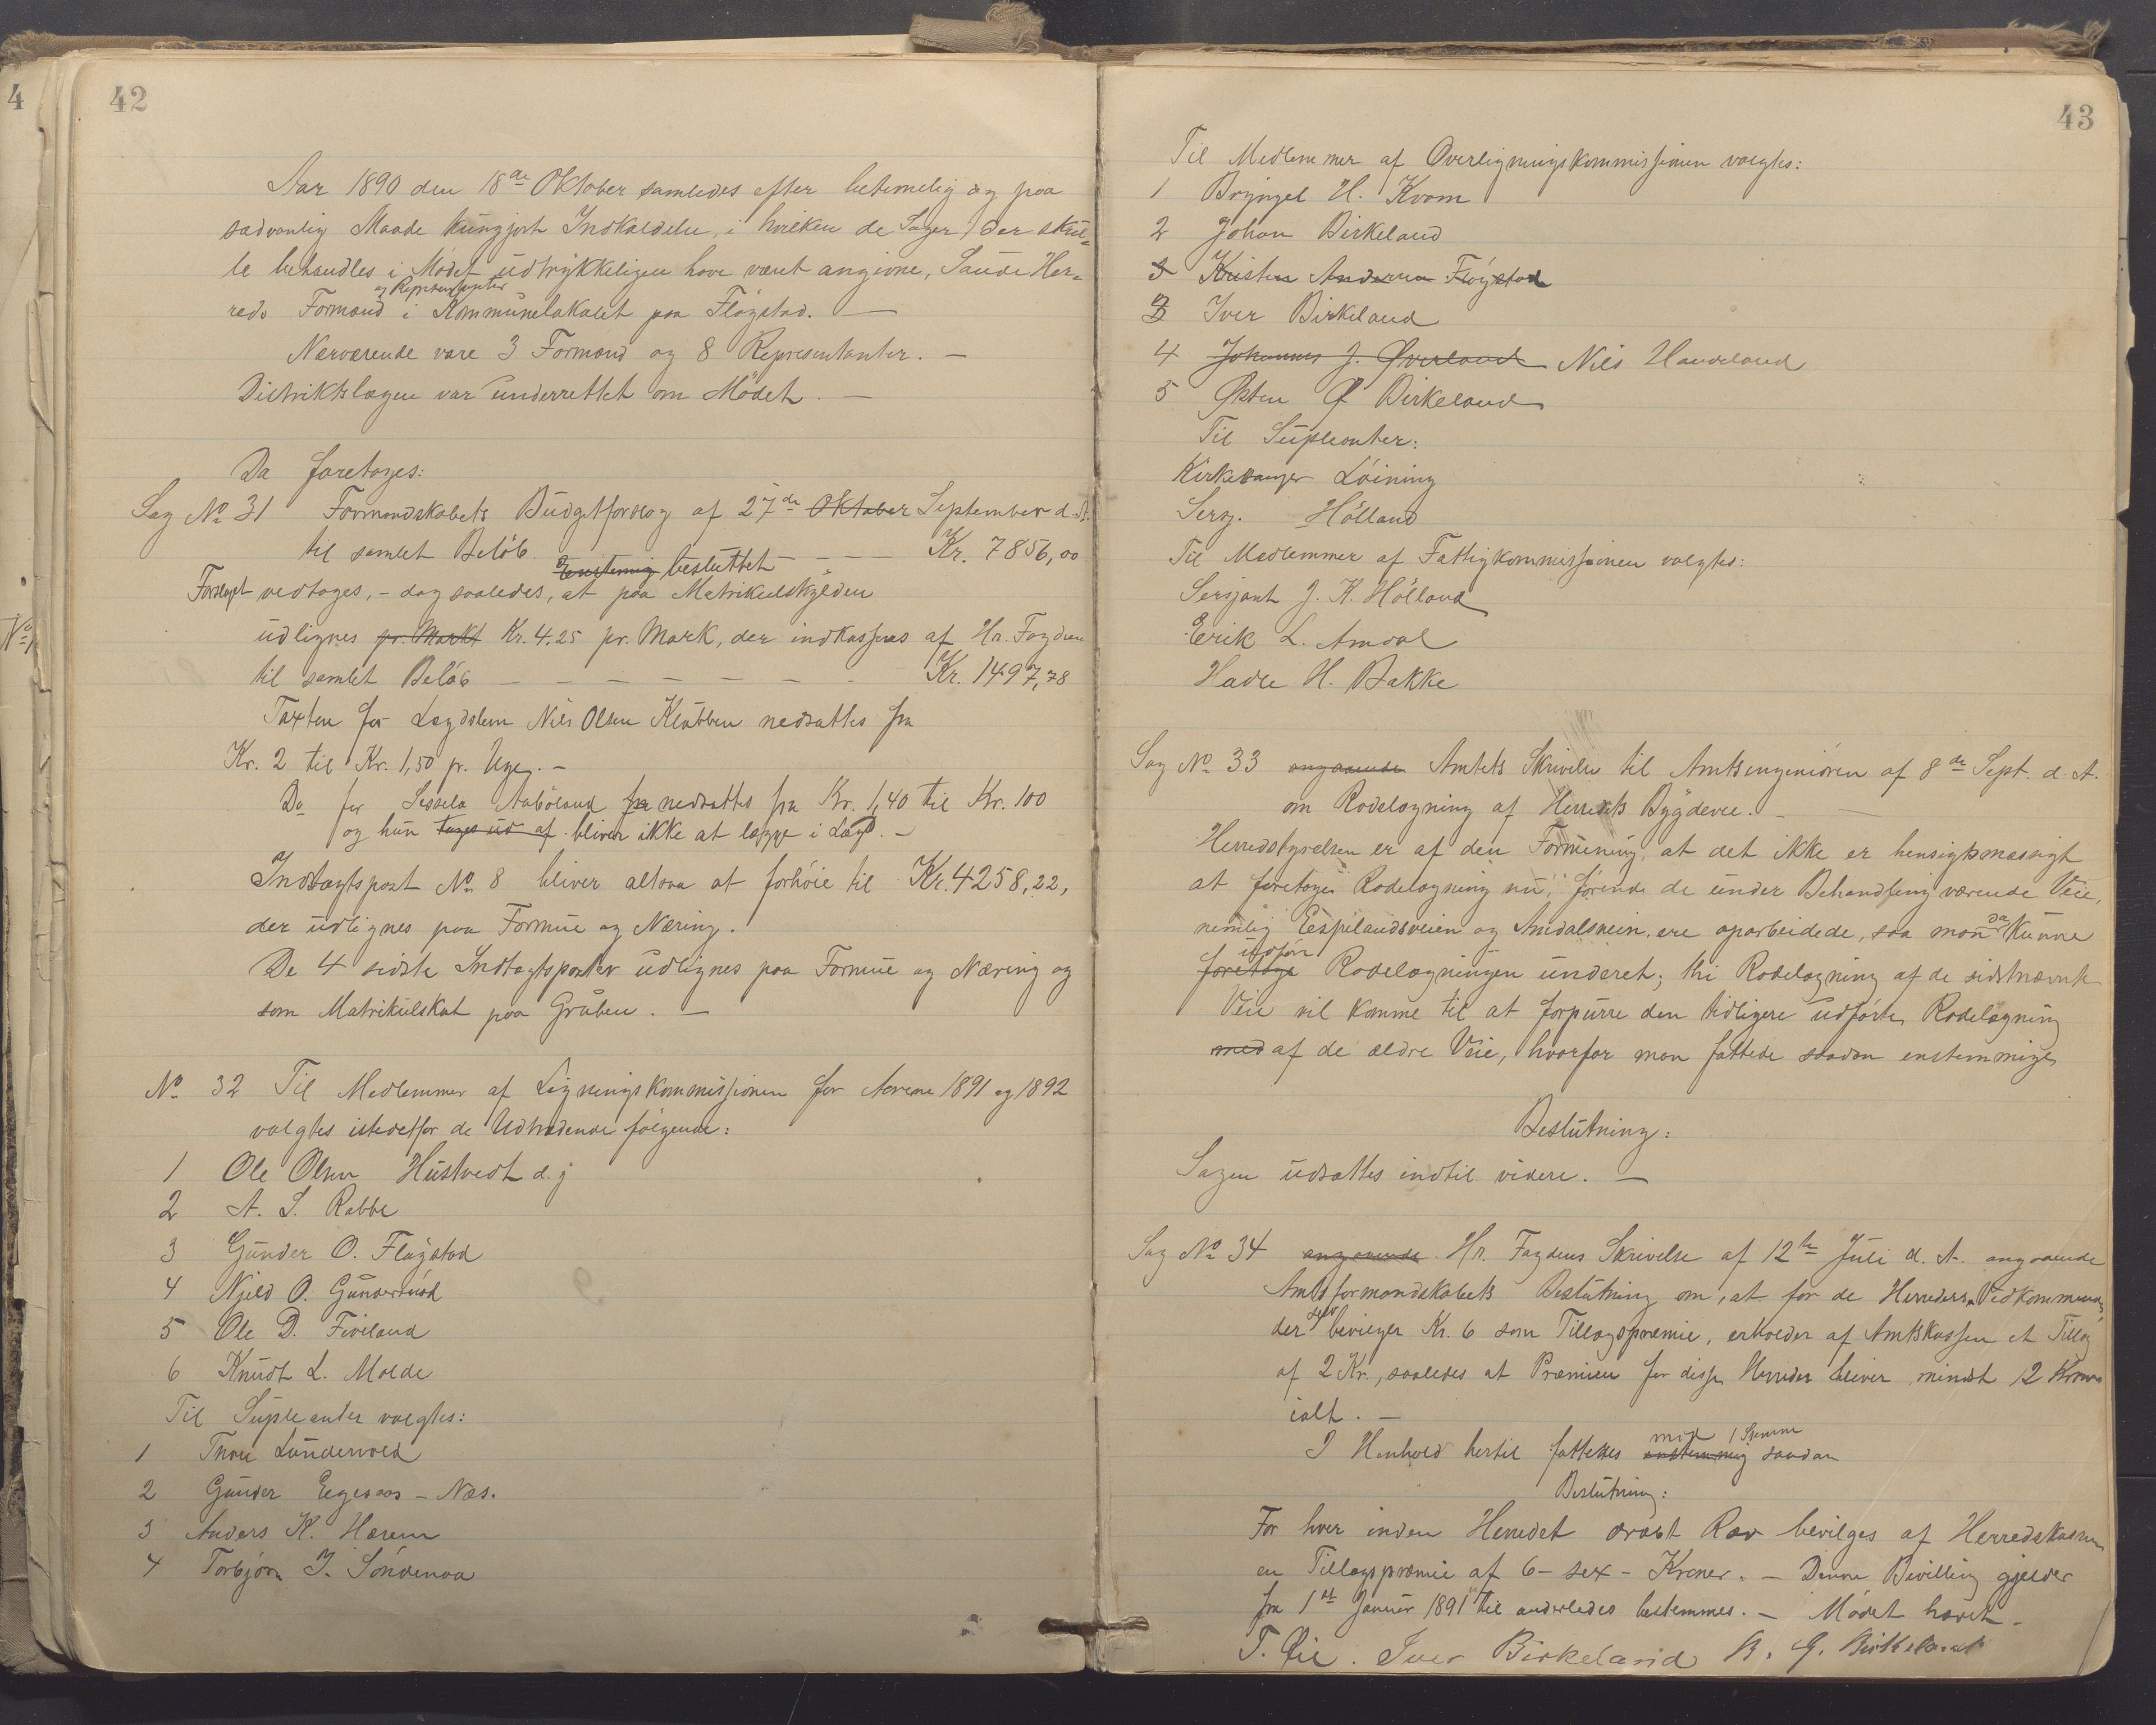 42
Aar 1890 den 18de Oktober samledes efter betimelig og paa
sædvanlig Maade kungjort Indkaldelse, i hvilken de Sager, der skul-
le behandles i Mødet udtrykkeligen have været angivne, Saude Her-
og Repræsentanter
reds Formænd i Kommunelokalet paa Fløgstad. —
Nærværende vare 3 Formænd og 8 Repræsentanter. —
Distriktslægen var underrettet om Mødet. —
Da foretoges:
Sag No 31 Formandskabets Budgetforslag af 27de Oktober September d. A.
til samlet Beløb - - - - Kr. 7856,00
Enstemmig besluttet
Forslaget vedtoges, - dog saaledes, at paa Matrikulskylden
udlignes pr. Markt Kr. 4.25 pr. Mark, der indkasseres af Hr. Fogden
til samlet Beløb - - - - - - - Kr. 1497,78
Taxten for Lægdslem Nils Olsen Klubben nedsattes fra
Kr. 2 til Kr. 1,50 pr. Uge. -
Do for Sessela Aabøland fra nedsattes fra Kr. 1,40 til Kr. 100
og hun tages ud af bliver ikke at lægge i Lægd. -
Indtægtspost No 8 bliver altsaa at forhøie til Kr. 4258,22,
der udlignes paa Formue og Næring.
De 4 sidste Indtægtsposter udlignes paa Formue og Næring og
som Matrikulskat paa Gruben. —
No 32 Til Medlemmer af Ligningskommissionen for Aarene 1891 og 1892
valgtes istedetfor de Udtrædende følgende:
1 Ole Olsen Hustvedt d. y
2 A. S. Rabbe
3 Gunder O. Fløgstad
4 Njeld O. Gundersød
5 Ole D. Fiveland
6 Knudt L. Molde
Til Supleanter valgtes:
1 Lundervold
2 Gunder Eegeaas - Næs.
3 Anders K. Hærem
4 Torbjørn I. Søndenaa
43
Til Medlemmer af Overligningskommissionen valgtes:
1 Bryngel H. Kvam
2 Johan Birkeland
3 Kristen Andersen Fløgstad
3 Iver Birkeland
4 Johannes J. Øverland Nils Handeland
5 Østen Ø Birkeland
Til Supleanter:
Kirkesanger Løining
Sersj. Hølland
Til Medlemmer af Fattigkommissionen valgtes:
Sersjant J. K. Hølland
Erik L. Amdal
Hadle H. Bakke
Sag No 33 angaaende Amtets Skrivelse til Amtsingeniøren af 8de Sept. d. A.
om Rodelægning af Herredets Bygdeveie. —
Herredstyrelsen er af den Formening, at det ikke er hensigtsmæssigt
at foretage Rodelægning nu, førend de under Behandling værende Veie,
nemlig Espelandsveien og Amdalsveien ere oparbeidede, saa man da kunne
udføre
foretage Rodelægningen underet; thi Rodelægning af de sidstnævnte
Veie vil komme til at forpurre den tidligere udførte Rodelægning
med af de ældre Veie, hvorfor man fattede saadan enstemmige
Beslutning:
Sagen udsættes indtil videre. —
Sag No 34 angaaende Hr. Fogdens Skrivelse af 12te Juli d. A. angaaende
Amtsformandskabets Beslutning om, at for de Herreders Vedkommende,
selv
der bevilger Kr. 6 som Tillægspræmie, erholder af Amtskassen et Tillæg
af 2 Kr., saaledes at Præmien for disse Herreder bliver mindst 12 Kroner
ialt. —
mod 1 Stemme
I Henhold hertil fattedes enstemmig saadan
Beslutning:
For hver inden Herredet dræbt Ræv bevilges af Herredskassen
en Tillægspræmie af 6 - sex - Kroner. - Denne Bevilling gjelder
fra 1ste Januar 1891 til anderledes bestemmes. — Mødet hævet. -
Iver Birkeland B. G. Birkeland